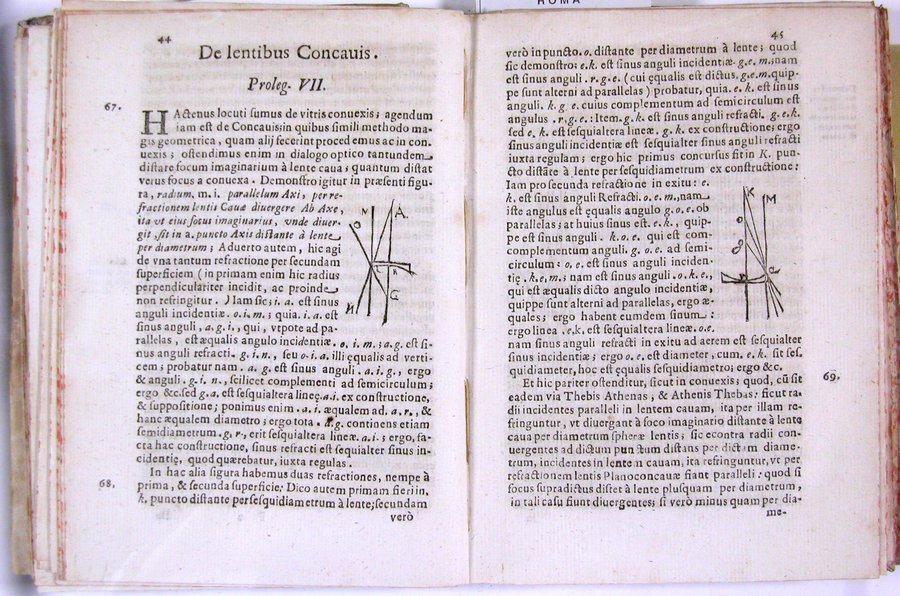 ROMA
44
De lentibus Concauis.
Proleg. VII.
67.
HActenus locuti sumus de vitris conuexis; agendum
iam est de Concauis: in quibus simili methodo ma-
gis geometrica, quam alij fecerint procedemus ac in con-
uexis; ostendimus enim in dialogo optico tantundem
distare focum imaginarium à lente caua; quantum distat
verus focus a conuexa. Demonstro igitur in præsenti figu-
ra, radium. m. i. parallelum Axi, per re-
fractionem lentis Cauæ diuergere Ab Axe,
ita vt eius focus imaginarius, vnde diuer-
git, sit in a. puncto Axis distante à lente
per diametrum; Aduerto autem, hic agi
de vna tantum refractione per secundam
superficiem (in primam enim hic radius
perpendiculariter incidit, ac proinde
non refringitur.) Iam sic; i. a. est sinus
anguli incidentiæ. o. i. m; quia. i. a. est
sinus anguli, a. g. i., qui, vtpote ad pa-
rallelas, est æqualis angulo incidentiæ. o, i. m; a. g. est si-
nus anguli refracti. g. i. n., seu o. i. a. illi ęqualis ad verti-
cem; probatur nam. a. g. est sinus anguli. a. i. g., ergo
& anguli. g. i. n., scilicet complementi ad semicirculum;
ergo &c. sed g. a. est sesquialtera lineę. a. i. ex constructione,
& suppositione; ponimus enim. a. i. æqualem ad. a. r., &
hanc æqualem diametro; ergo tota. a. g. continens etiam
semidiametrum. g. r., erit sesquialtera lineæ. a. i.; ergo, fa-
cta hac constructione, sinus refracti est sesquialter sinus in-
cidentię, quod quærebatur, iuxta regulas.
68.
In hac alia figura habemus duas refractiones, nempe à
prima, & secunda superficie: Dico autem primam fieri in,
k. puncto distante per sesquidiametrum à lente; secundam
verò
O N A
L R
G
45
verò in puncto. o. distante per diametrum à lente; quod
sic demonstro; e. k. est sinus anguli incidentiæ. g. e. m; nam
est sinus anguli. r. g. e. (cui ęqualis est dictus, g. e. m. quip-
pe sunt alterni ad parallelas) probatur, quia. e. k. est sinus
anguli. k. g. e. cuius complementum ad semicirculum est
angulus. r. g. e.: Item. g. k. est sinus anguli refracti. g. e. k.
sed e. k. est sesquialtera lineæ. g. k. ex constructione; ergo
sinus anguli incidentiæ est sesquialter sinus anguli refracti
iuxta regulam; ergo hic primus concursus fit in K. pun-
cto distāte à lente per sesquidiametrum ex constructione:
Iam pro secunda refractione in exitu: e.
k. est sinus anguli Refracti. o. e. m, nam
iste angulus est ęqualis angulo g. o. e. ob
parallelas; at huius sinus est. e. k., quip-
pe est sinus anguli. k. o. e. qui est com-
complementum anguli. g. o. e. ad semi-
circulum: o. e. est sinus anguli inciden-
tię. k. e. m; nam est sinus anguli. o. k. e.,
qui est æqualis dicto angulo incidentiæ,
quippe sunt alterni ad parallelas, ergo æ-
quales; ergo habent eumdem sinum:
ergo linea. e. k. est sesquialtera lineæ. o. e.
nam sinus anguli refracti in exitu ad aerem est sesquialter
sinus incidentiæ; ergo o. e. est diameter, cum. e. k. sit ses-
quidiameter, hoc est ęqualis sesquidiametro; ergo &c.
69.
Et hic pariter ostenditur, sicut in conuexis; quod, cū sit
eadem via Thebis Athenas, & Athenis Thebas: sicut ra-
dii incidentes paralleli in lentem cauam, ita per illam re-
fringuntur, vt diuergant à foco imaginario distante à lente
caua per diametrum spheræ lentis; sic econtra radii con-
uergentes ad dictum punctum distans per dictam diame-
trum, incidentes in lentem cauam, ita refringuntur, vt per
refractionem lentis Planoconcauæ fiant paralleli: quod si
focus supradictus distet à lente plusquam per diametrum,
in tali casu fiunt diuergentes; si verò minus quam per dia-
me-
K M
O
g